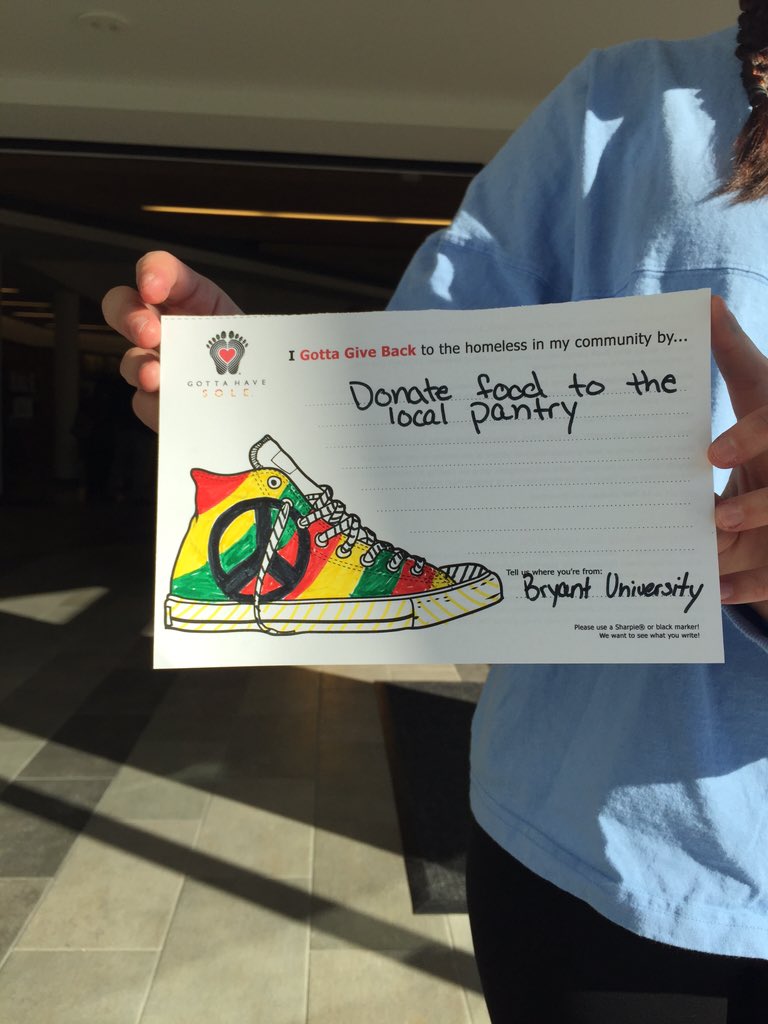 GOTTA HAVE
SOLE
I Gotta Give Back to the homeless in my community by...
Donate food to the
local pantry
Tell us where you're from:
Bryant University
Please use a Sharpie® or black marker!
We want to see what you write!